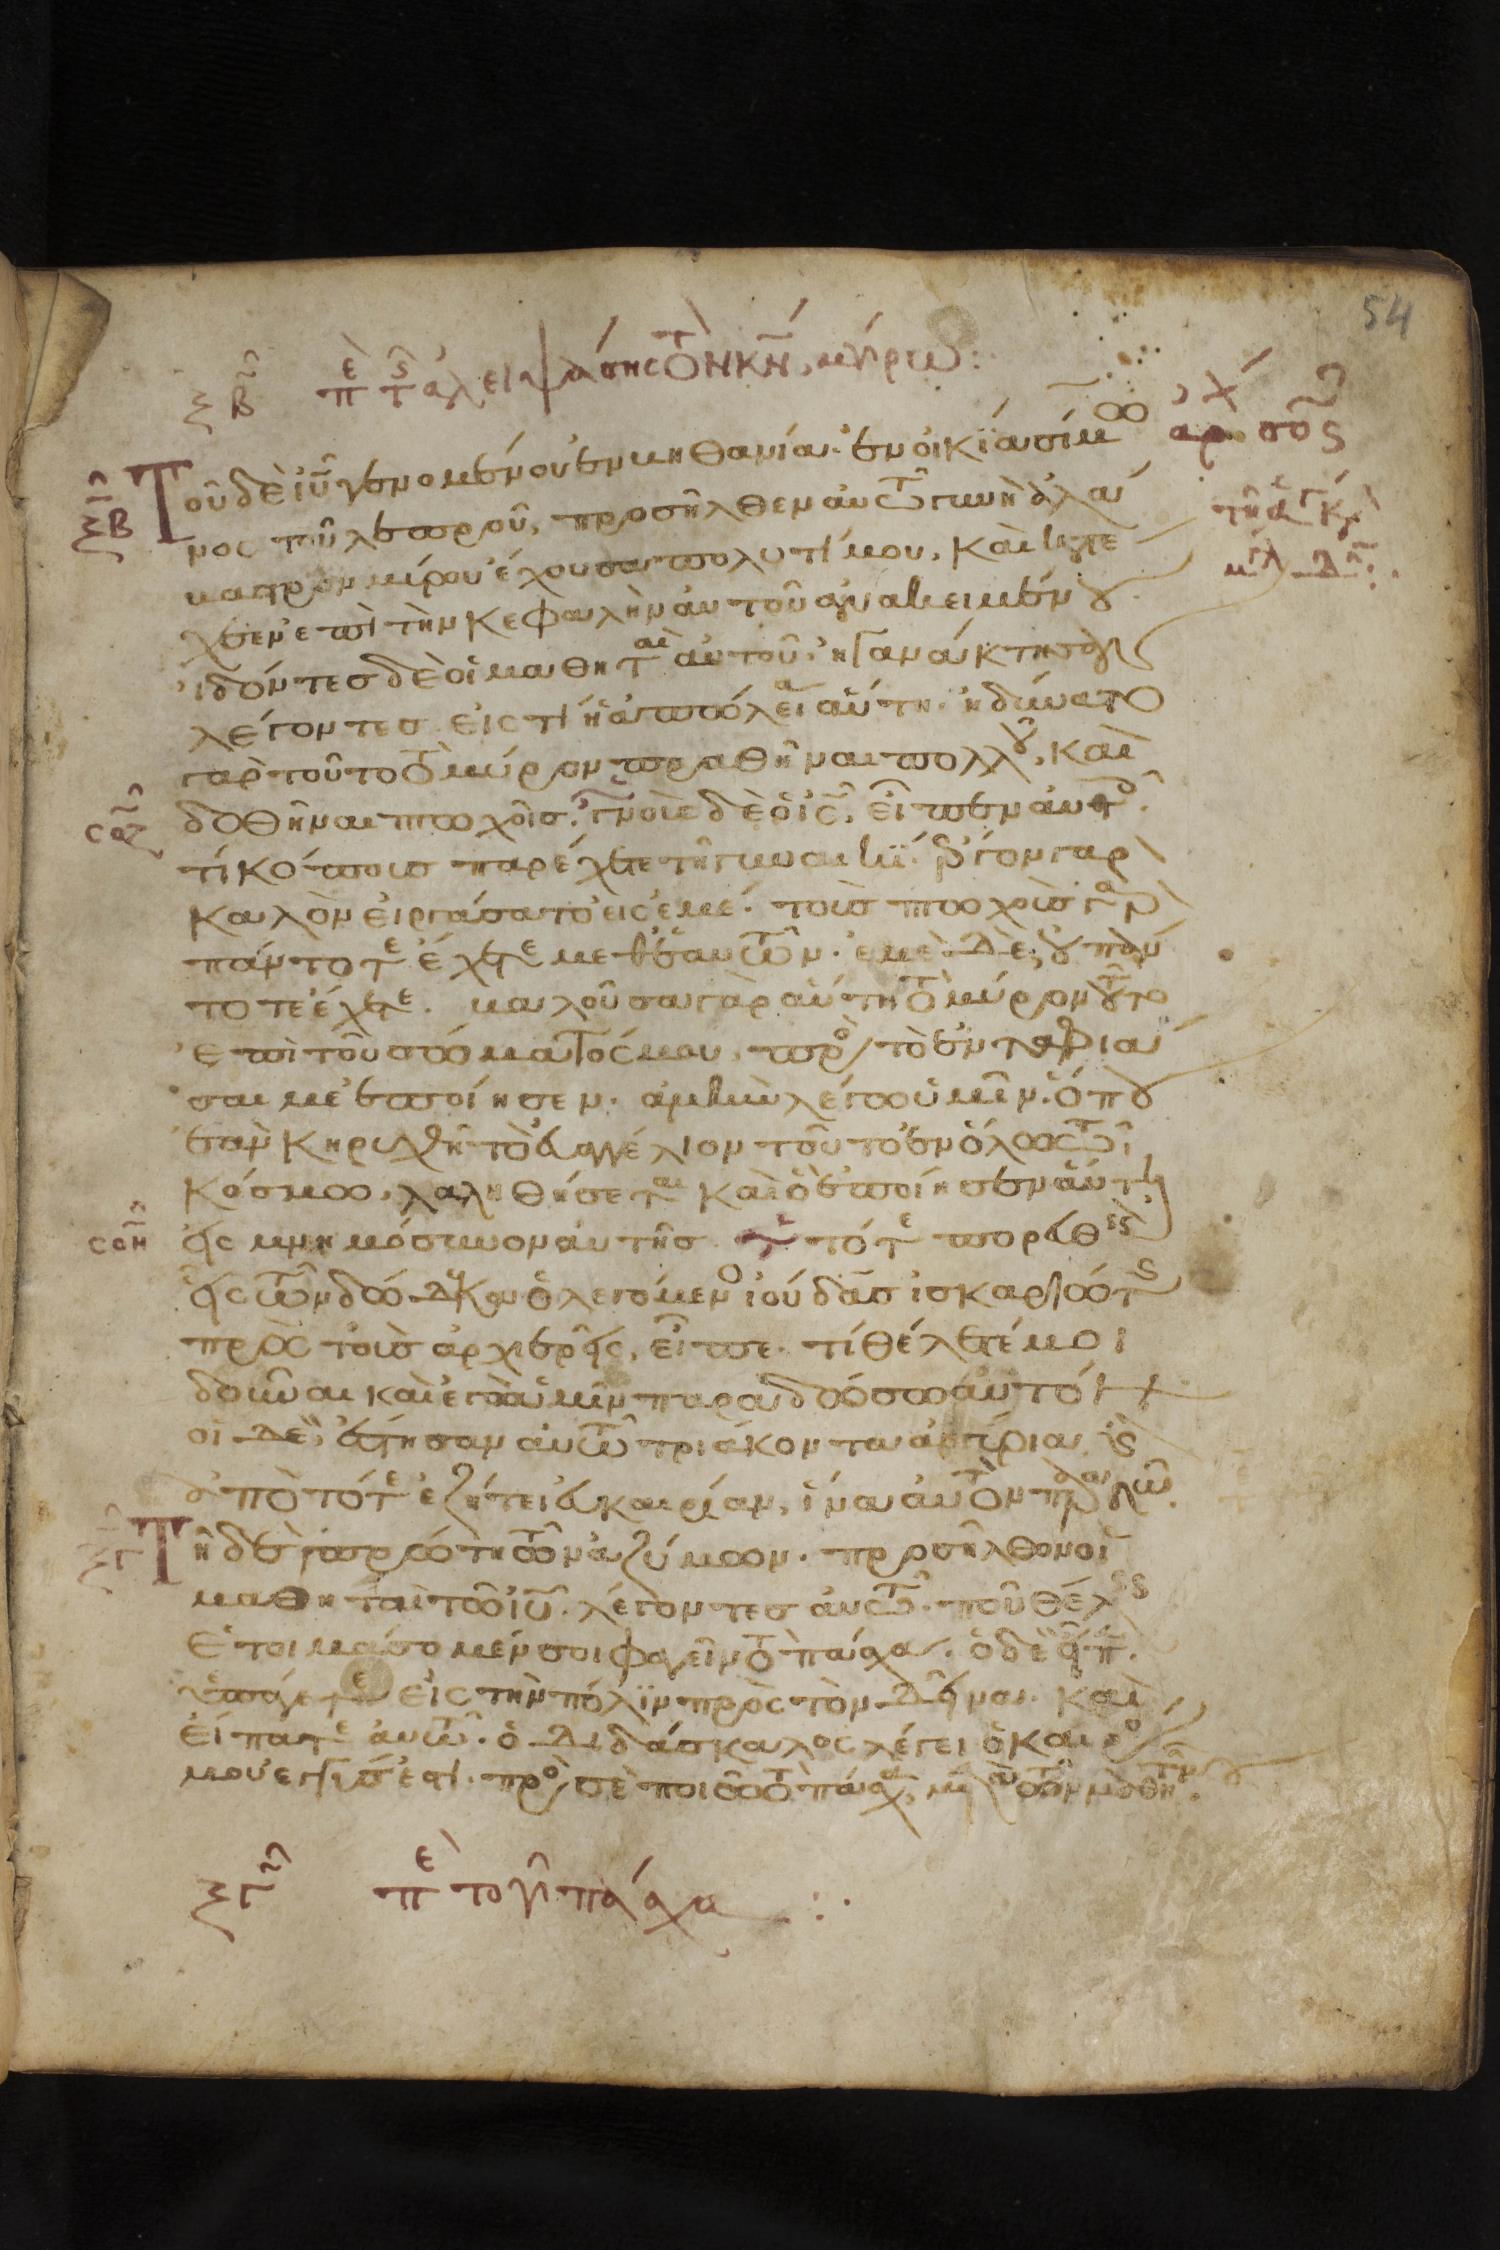 54
ξβ πε τς ἀλειψάσης τὸν κν μύρω:
ἀρχ
τῆ ἁγ κ
μγλ δ:
ξβ Τοῦ δὲ ἰυ γενομένου ἐν βηθανία· ἐν οἰκία σίμω
νος τοῦ λεπροῦ, προσῆλθεν αὐτῶ γυνὴ ἀλά
βαστρον μύρου ἔχουσα πολυτίμου, καὶ κατέ
χεεν ἐπὶ τὴν κεφαλὴν αὐτοῦ ἀνακειμένου·
ἰδόντες δὲ οἱ μαθηταὶ αὐτοῦ· ἠγανάκτησαν
λέγοντες εἰς τί ἡ ἀπώλεια αὕτη· ἠδύνατο
γὰρ τοῦτο τὸ μύρον πραθῆναι πολλοῦ, καὶ
σοζ δοθῆναι πτωχοῖς· γνοὺς δὲ ὁ ις, εἶπεν αὐτοῖς·
τί κόπους παρέχετε τῆ γυναικί· ἔργον γὰρ
καλὸν εἰργάσατο εἰς ἐμέ· τοὺς πτωχοὺς γὰρ
πάντοτε ἔχετε μεθ' ἑαυτῶν· ἐμὲ δὲ οὐ πάν
τοτε ἔχετε. βαλοῦσα γὰρ αὕτη τὸ μύρον τοῦτο
ἐπὶ τοῦ σώματός μου, πρὸς τὸ ἐνταφιά
σαι με ἐποίησεν· ἀμὴν λέγω ὑμῖν· ὅπου
ἐὰν κηρυχθῆ τὸ εὐαγγέλιον τοῦτο ἐν ὅλω τῶ
κόσμω, λαληθήσεται καὶ ὃ ἐποίησεν αὕτη
σοη εἰς μνημόσυνον αὐτῆς τε τότε πορευθεὶς
εἷς τῶν δώδεκα ὁ λεγόμενος ἰούδας ἰσκαριώτης
πρὸς τοὺς ἀρχιερεῖς, εἶπε· τί θέλετέ μοι
δοῦναι καὶ ἐγὼ ὑμῖν παραδώσω αὐτόν
οἱ δὲ ἔστησαν αὐτῶ τριάκοντα ἀργύρια καὶ
ἀπὸ τότε ἐζήτει εὐκαιρίαν, ἵνα αὐτὸν παραδῶ·
ξγ Τῆ δὲ πρώτη τῶν ἀζύμων· προσῆλθον οἱ
μαθηταὶ τῶ ἰυ· λέγοντες αὐτῶ· ποῦ θέλεις
ἑτοιμάσομέν σοι φαγεῖν τὸ πάσχα· ὁ δὲ εἶπ·
ὑπάγετε εἰς τὴν πόλιν πρὸς τὸν δεῖνα· καὶ
εἴπατε αὐτῶ· ὁ διδάσκαλος λέγει ὁ καιρός
μου ἐγγύς ἐστι· πρὸς σὲ ποιῶ τὸ πάσχα, μετὰ τῶν μαθητῶν μου·
ξγ πε τοῦ πάσχα :·